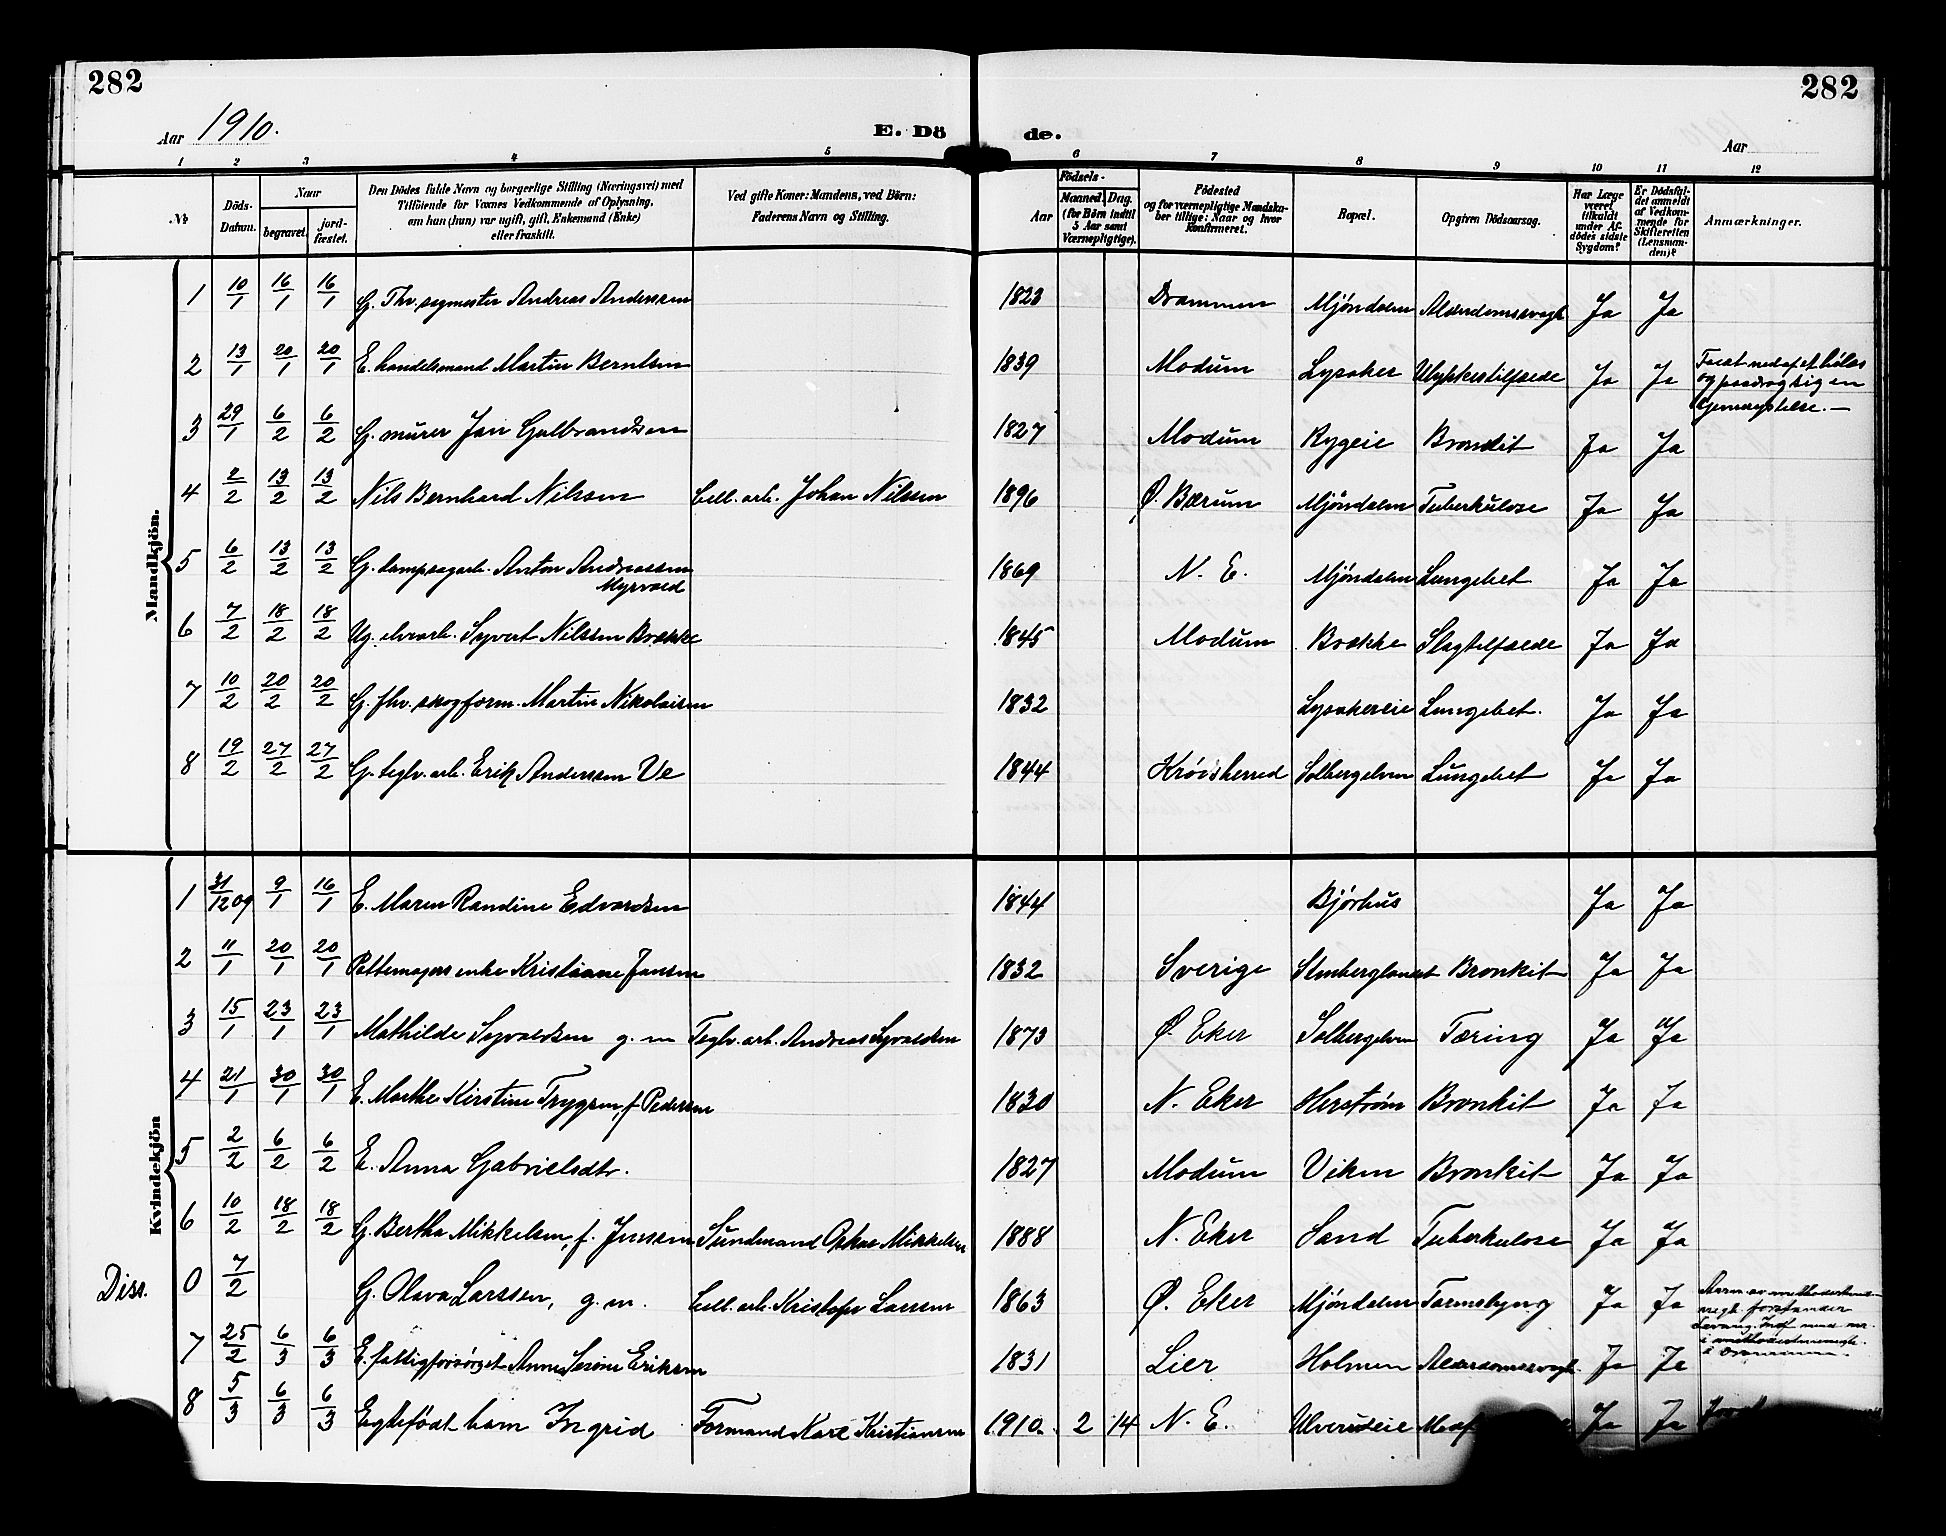 282
282
Aar 1910.
E. Dö
de.
Aar
1 2 3 4 5 6 7 8 9 10 11 12
№
Döds-
Datum.
Naar
begravet.
jord-
fæstet.
Den Dödes fulde Navn og borgerlige Stilling (Næringsvei) med
Tilföiende for Voxnes Vedkommende af Oplysning,
om han (hun) var ugift, gift, Enkemand (Enke)
eller fraskilt.
Ved gifte Koner: Mandens, ved Börn:
Faderens Navn og Stilling.
Födsels-
Aar
Maaned. Dag.
(for Börn indtil
5 Aar samt
Værnepligtige).
Födested
og for værnepligtige Mandska-
ber tillige: Naar og hvor
konfirmeret.
Bopæl.
Opgiven Dödsaarsag.
Har Læge
været
tilkaldt
under Af-
dödes sidste
Sygdom?
Er Dödsfal-
det anmeldt
af Vedkom-
mende for
Skifteretten
(Lensman-
den)?
Anmærkninger.
Mandkjön.
1 10/1 16/1 16/1 G. Fhv. sagmester Andreas Anderssen 1823 Drammen Mjöndalen Alderdomssvagh. Ja Ja
2 13/1 20/1 20/1 E. handelsmand Martin Berntsen 1839 Modum Lysaker Ulykkestilfælde Ja Ja
og paadrog sig en
3 29/1 6/2 6/2 G. murer Jan Gulbrandsen 1827 Modum Rygeie Bronkit Ja Ja
4 2/2 13/2 13/2 Nils Bernhard Nilssen Cell. arb. Johan Nilssen 1896 Ø. Bærum Mjöndalen Tuberkulose Ja Ja
5 6/2 13/2 13/2 G. dampsagarb. Anton Andreassen 1869 N. E. Mjöndalen Lungebet Ja Ja
Myrvold
6 7/2 18/2 18/2 Ug. elvearb. Syvert Nilssen Brække 1845 Modum Brække Slagtilfælde Ja Ja
7 10/2 20/2 20/2 G. fhv. skogform. Martin Nikolaisen 1832 Lysakereie Lungebet. Ja Ja
8 19/2 27/2 27/2 G. teglv. arb. Erik Anderssen Ve 1844 Krödsherred Solbergelven Lungebet Ja Ja
Kvindekjön
1 31/12 09 9/1 16/1 E. Maren Randine Edvardsen 1844 Bjørhus Ja Ja
2 11/1 20/1 20/1 Pottemagers enke Kristiane Jansen 1832 Sverige Stenberglandet Bronkit Ja Ja
3 15/1 23/1 23/1 Mathilde Syvaldsen g. m Teglv. arb. Andreas Syvaldsen 1873 Ø. Eker Solbergelven Tæring Ja Ja
4 21/1 30/1 30/1 E. Marthe Kirstine Trygsen, f. Pedersen 1830 N. Eker Herstrøm Bronkit Ja Ja
5 2/2 6/2 6/2 E. Anna Gabrielsdtr. 1827 Modum Viken Bronkit Ja Ja
6 10/2 18/2 18/2 G. Bertha Mikkelsen, f. Jenssen Sundmand Oskar Mikkelsen 1888 N. Eker Sand Tuberkulose Ja Ja
Diss. 0 7/2 G. Olava Larssen, g. m. Cell. arb. Kristofer Larssen 1863 Ø. Eker Mjöndalen Tarmslyng Ja Ja
forstander
7 25/2 6/3 6/3 E. fattigforsörget Anne Serine Eriksen 1831 Lier Holmen Alderdomssvagh. Ja Ja
8 5/3 6/3 6/3 Egtefödt barn Ingrid Formand Karl Kristiansen 1910. 2 14 N. E. Ulverudeie Ja Ja